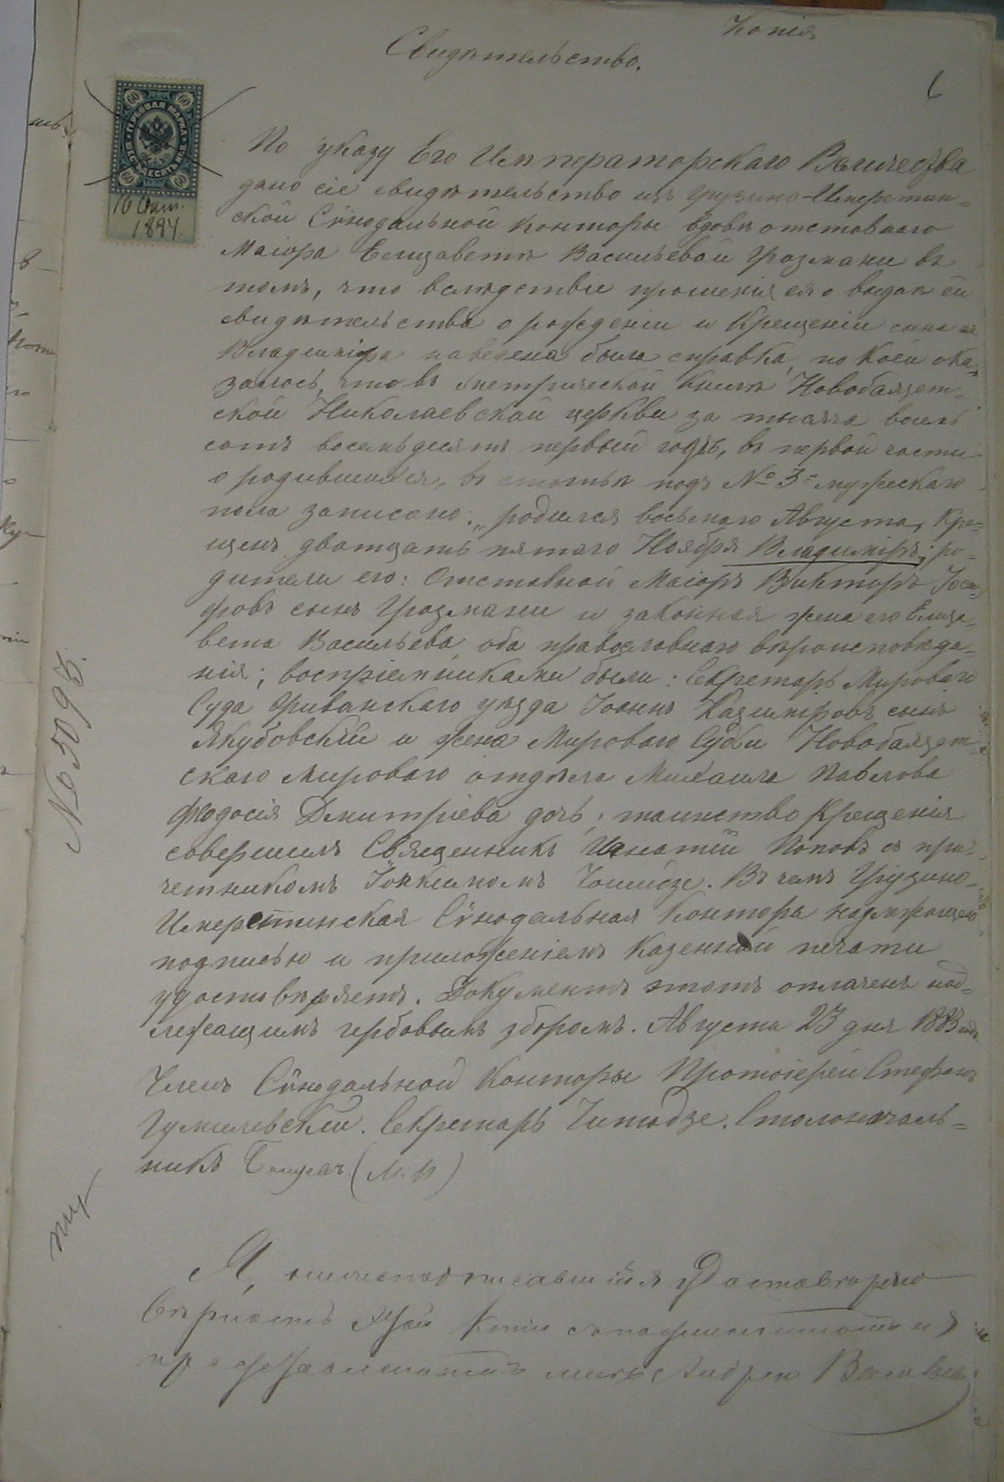 Копія
Свидѣтельство.
6
60 60
ГЕРБОВАЯ МАРКА
60 60
16 Окт.
1894.
По указу Его Императорскаго Величества
дано сіе свидѣтельство изъ Грузино-Имеретин-
ской Сѵнодальной Конторы вдовѣ отставнаго
Маіора Елизаветѣ Васильевой Грозмани въ
томъ, что вслѣдствіе прошенія ея о выдачѣ ей
свидѣтельства о рожденіи и Крещеніи сына ея
Владиміра наведена была справка, по коей ока-
залось, что въ метрической книгѣ Новобаязет-
ской Николаевской церкви за тысяча восемь
сотъ восемьдесятъ первый годъ, въ первой части
о родившихся, въ статьѣ подъ № 3 мужескаго
пола записано: „родился восьмаго Августа, Кре-
щенъ двадцать пятаго Ноября Владиміръ; ро-
дители его: Отставной Маіоръ Викторъ Іоси-
фовъ сынъ Грозмани и законная жена его Елиза-
вета Васильева оба православнаго вѣроисповѣда-
нія; воспріемниками были: Секретарь Мироваго
Суда Эриванскаго уѣзда Іоаннъ Казиміровъ сынъ
Якубовскій и жена Мироваго Судьи Новобаязет-
скаго Мироваго отдѣла Михаила Павлова
Ѳеодосія Дмитріева дочь; таинство Крещенія
совершилъ Священникъ Игнатій Поповъ съ при-
четникомъ Іоакимомъ . Въ чемъ Грузино-
Имеретинская Сѵнодальная Контора надлежащею
подписью и приложеніемъ Казенной печати
удостовѣряетъ. Документъ этотъ оплаченъ над-
лежащимъ гербовымъ сборомъ. Августа 23 дня 1883 года
Членъ Сѵнодальной Конторы Протоіерей Стефанъ
Гумилевскій. Секретарь . Столоначаль-
никъ (М.П)
№ 5095.
Я, нижеподписавшійся удостовѣряю
вѣрность этой копіи съ подлинникомъ
мнѣ Андреемъ